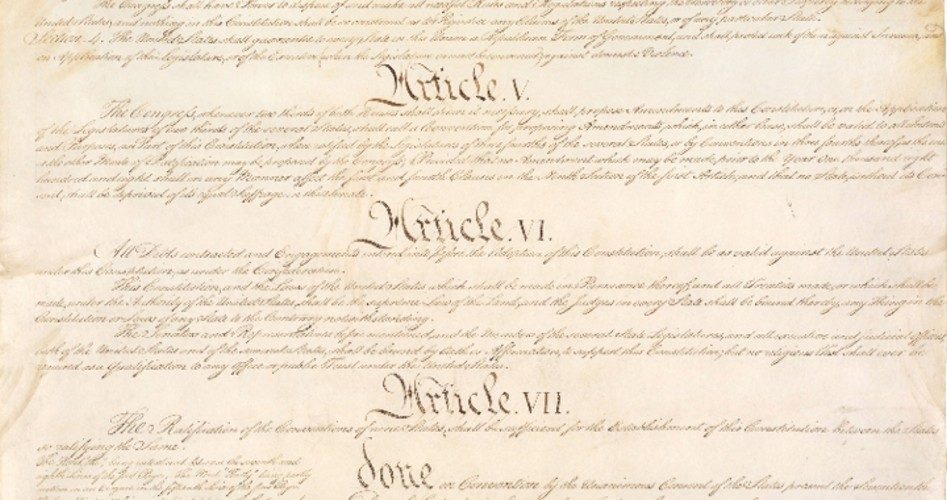 The Congress shall have Power to dispose of and make all needful Rules and Regulations respecting the Territory or other Property belonging to the
United States; and nothing in this Constitution shall be so construed as to Prejudice any Claims of the United States, or of any particular State.
Section. 4. The United States shall guarantee to every State in this Union a Republican Form of Government, and shall protect each of them against Invasion; and
on Application of the Legislature, or of the Executive (when the Legislature cannot be convened) against domestic Violence.
Article. V.
The Congress, whenever two thirds of both Houses shall deem it necessary, shall propose Amendments to this Constitution, or, on the Application
of the Legislatures of two thirds of the several States, shall call a Convention for proposing Amendments, which, in either Case, shall be valid to all Intents
and Purposes, as Part of this Constitution, when ratified by the Legislatures of three fourths of the several States, or by Conventions in three fourths thereof, as the one
or the other Mode of Ratification may be proposed by the Congress; Provided that no Amendment which may be made prior to the Year One thousand eight
hundred and eight shall in any Manner affect the first and fourth Clauses in the Ninth Section of the first Article; and that no State, without its Con
sent, shall be deprived of its equal Suffrage in the Senate.
Article. VI.
All Debts contracted and Engagements entered into, before the Adoption of this Constitution, shall be as valid against the United States
under this Constitution, as under the Confederation.
This Constitution, and the Laws of the United States which shall be made in Pursuance thereof; and all Treaties made, or which shall be
made, under the Authority of the United States, shall be the supreme Law of the Land; and the Judges in every State shall be bound thereby, any Thing in the
Constitution or Laws of any State to the Contrary notwithstanding.
The Senators and Representatives before mentioned, and the Members of the several State Legislatures, and all executive and judicial Officers,
both of the United States and of the several States, shall be bound by Oath or Affirmation, to support this Constitution; but no religious Test shall ever be
required as a Qualification to any Office or public Trust under the United States.
Article. VII.
The Ratification of the Conventions of nine States, shall be sufficient for the Establishment of this Constitution between the States
so ratifying the Same.
The Word, "the," being interlined between the seventh and
eighth Lines of the first Page, The Word "Thirty" being partly
written on an Erazure in the fifteenth Line of the first Page,
done in Convention by the Unanimous Consent of the States present the Seventeenth